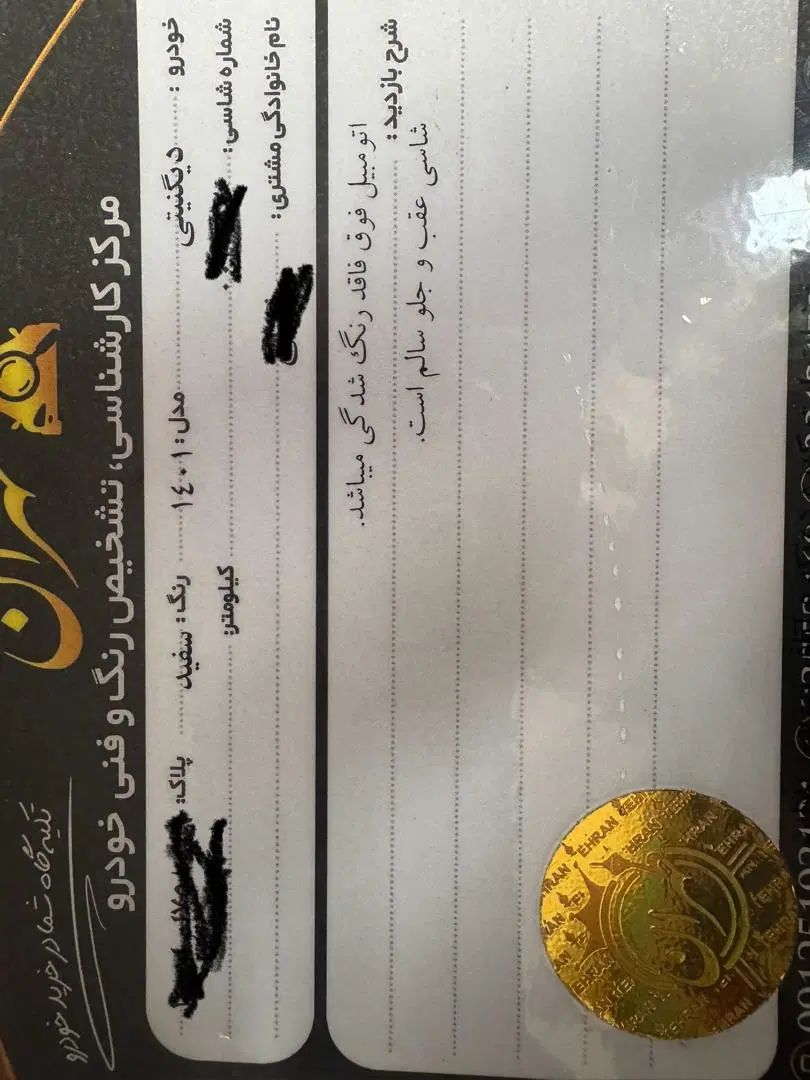 تهران
مرکز کارشناسی، تشخیص رنگ و فنی خودرو
تکیه گاه شما در خرید خودرو
خودرو : دیگنیتی مدل: ۱٤۰۱ رنگ: سفید پلاک:
شماره شاسی: کیلومتر:
نام خانوادگی مشتری:
شرح بازدید:
اتومبیل فوق فاقد رنگ شدگی میباشد.
شاسی عقب و جلو سالم است.
TEHRAN